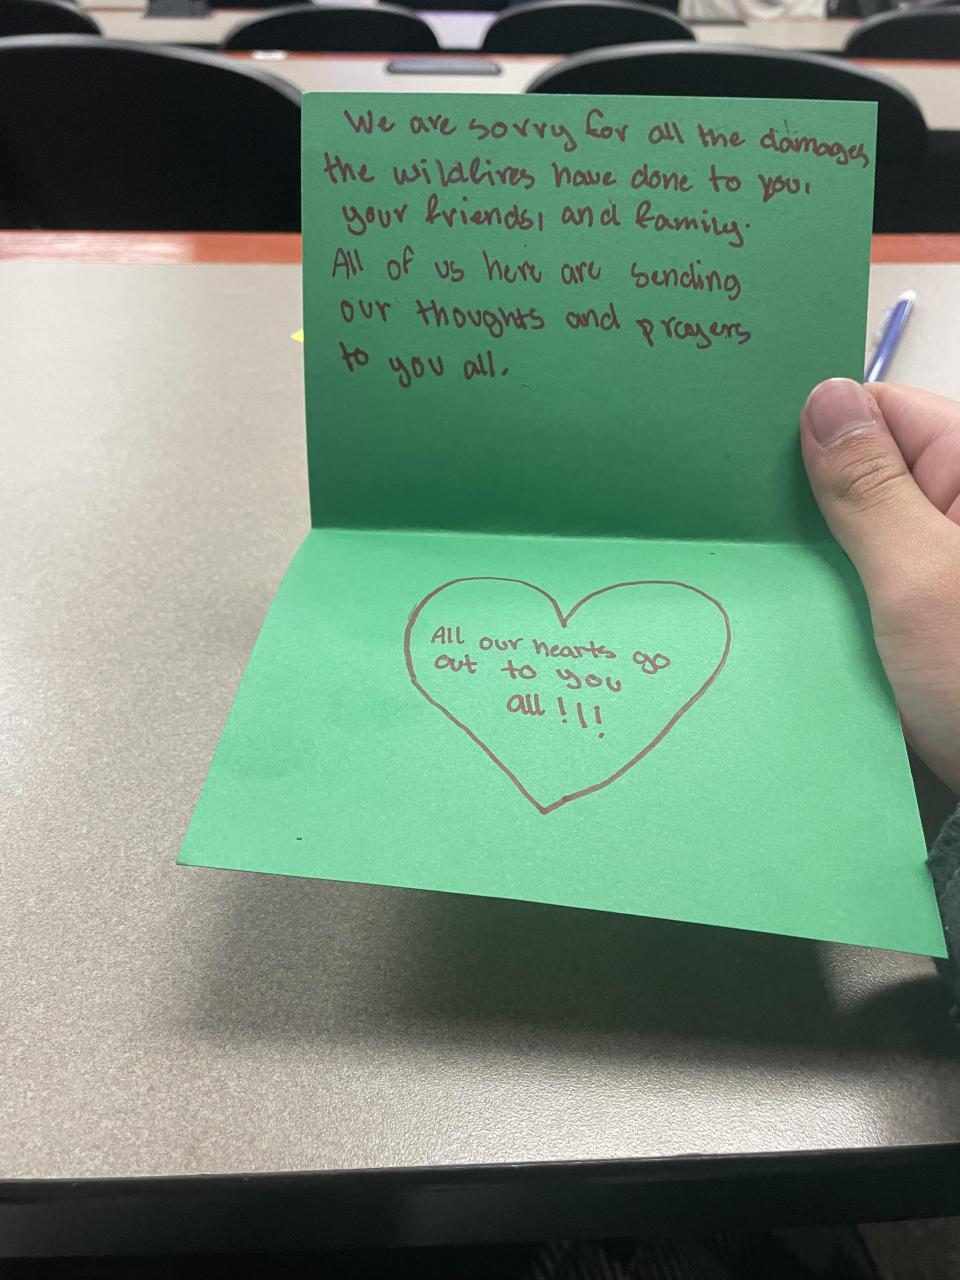 We are sorry for all the damages
the wildfires have done to you,
your friends, and family.
All of us here are sending
our thoughts and prayers
to you all.
All our hearts go
out to you
all!!!